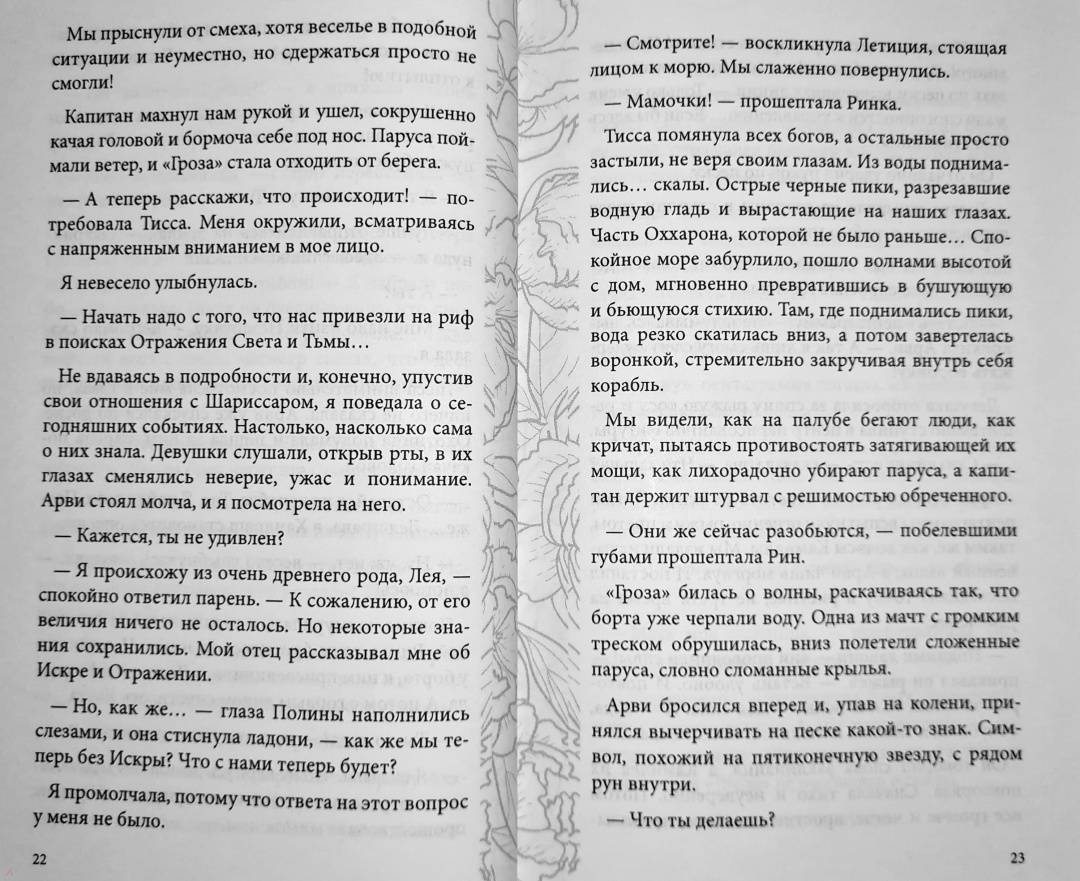 Мы прыснули от смеха, хотя веселье в подобной
ситуации и неуместно, но сдержаться просто не
смогли!
Капитан махнул нам рукой и ушел, сокрушенно
качая головой и бормоча себе под нос. Паруса пой-
мали ветер, и «Гроза» стала отходить от берега.
— А теперь расскажи, что происходит! — по-
требовала Тисса. Меня окружили, всматриваясь
с напряженным вниманием в мое лицо.
Я невесело улыбнулась.
— Начать надо с того, что нас привезли на риф
в поисках Отражения Света и Тьмы…
Не вдаваясь в подробности и, конечно, упустив
свои отношения с Шариссаром, я поведала о се-
годняшних событиях. Настолько, насколько сама
о них знала. Девушки слушали, открыв рты, в их
глазах сменялись неверие, ужас и понимание.
Арви стоял молча, и я посмотрела на него.
— Кажется, ты не удивлен?
— Я происхожу из очень древнего рода, Лея, —
спокойно ответил парень. — К сожалению, от его
величия ничего не осталось. Но некоторые зна-
ния сохранились. Мой отец рассказывал мне об
Искре и Отражении.
— Но, как же… — глаза Полины наполнились
слезами, и она стиснула ладони, — как же мы те-
перь без Искры? Что с нами теперь будет?
Я промолчала, потому что ответа на этот вопрос
у меня не было.
22
— Смотрите! — воскликнула Летиция, стоящая
лицом к морю. Мы слаженно повернулись.
— Мамочки! — прошептала Ринка.
Тисса помянула всех богов, а остальные просто
застыли, не веря своим глазам. Из воды поднима-
лись… скалы. Острые черные пики, разрезавшие
водную гладь и вырастающие на наших глазах.
Часть Оххарона, которой не было раньше… Спо-
койное море забурлило, пошло волнами высотой
с дом, мгновенно превратившись в бушующую
и бьющуюся стихию. Там, где поднимались пики,
вода резко скатилась вниз, а потом завертелась
воронкой, стремительно закручивая внутрь себя
корабль.
Мы видели, как на палубе бегают люди, как
кричат, пытаясь противостоять затягивающей их
мощи, как лихорадочно убирают паруса, а капи-
тан держит штурвал с решимостью обреченного.
— Они же сейчас разобьются, — побелевшими
губами прошептала Рин.
«Гроза» билась о волны, раскачиваясь так, что
борта уже черпали воду. Одна из мачт с громким
треском обрушилась, вниз полетели сложенные
паруса, словно сломанные крылья.
Арви бросился вперед и, упав на колени, при-
нялся вычерчивать на песке какой-то знак. Сим-
вол, похожий на пятиконечную звезду, с рядом
рун внутри.
— Что ты делаешь?
23